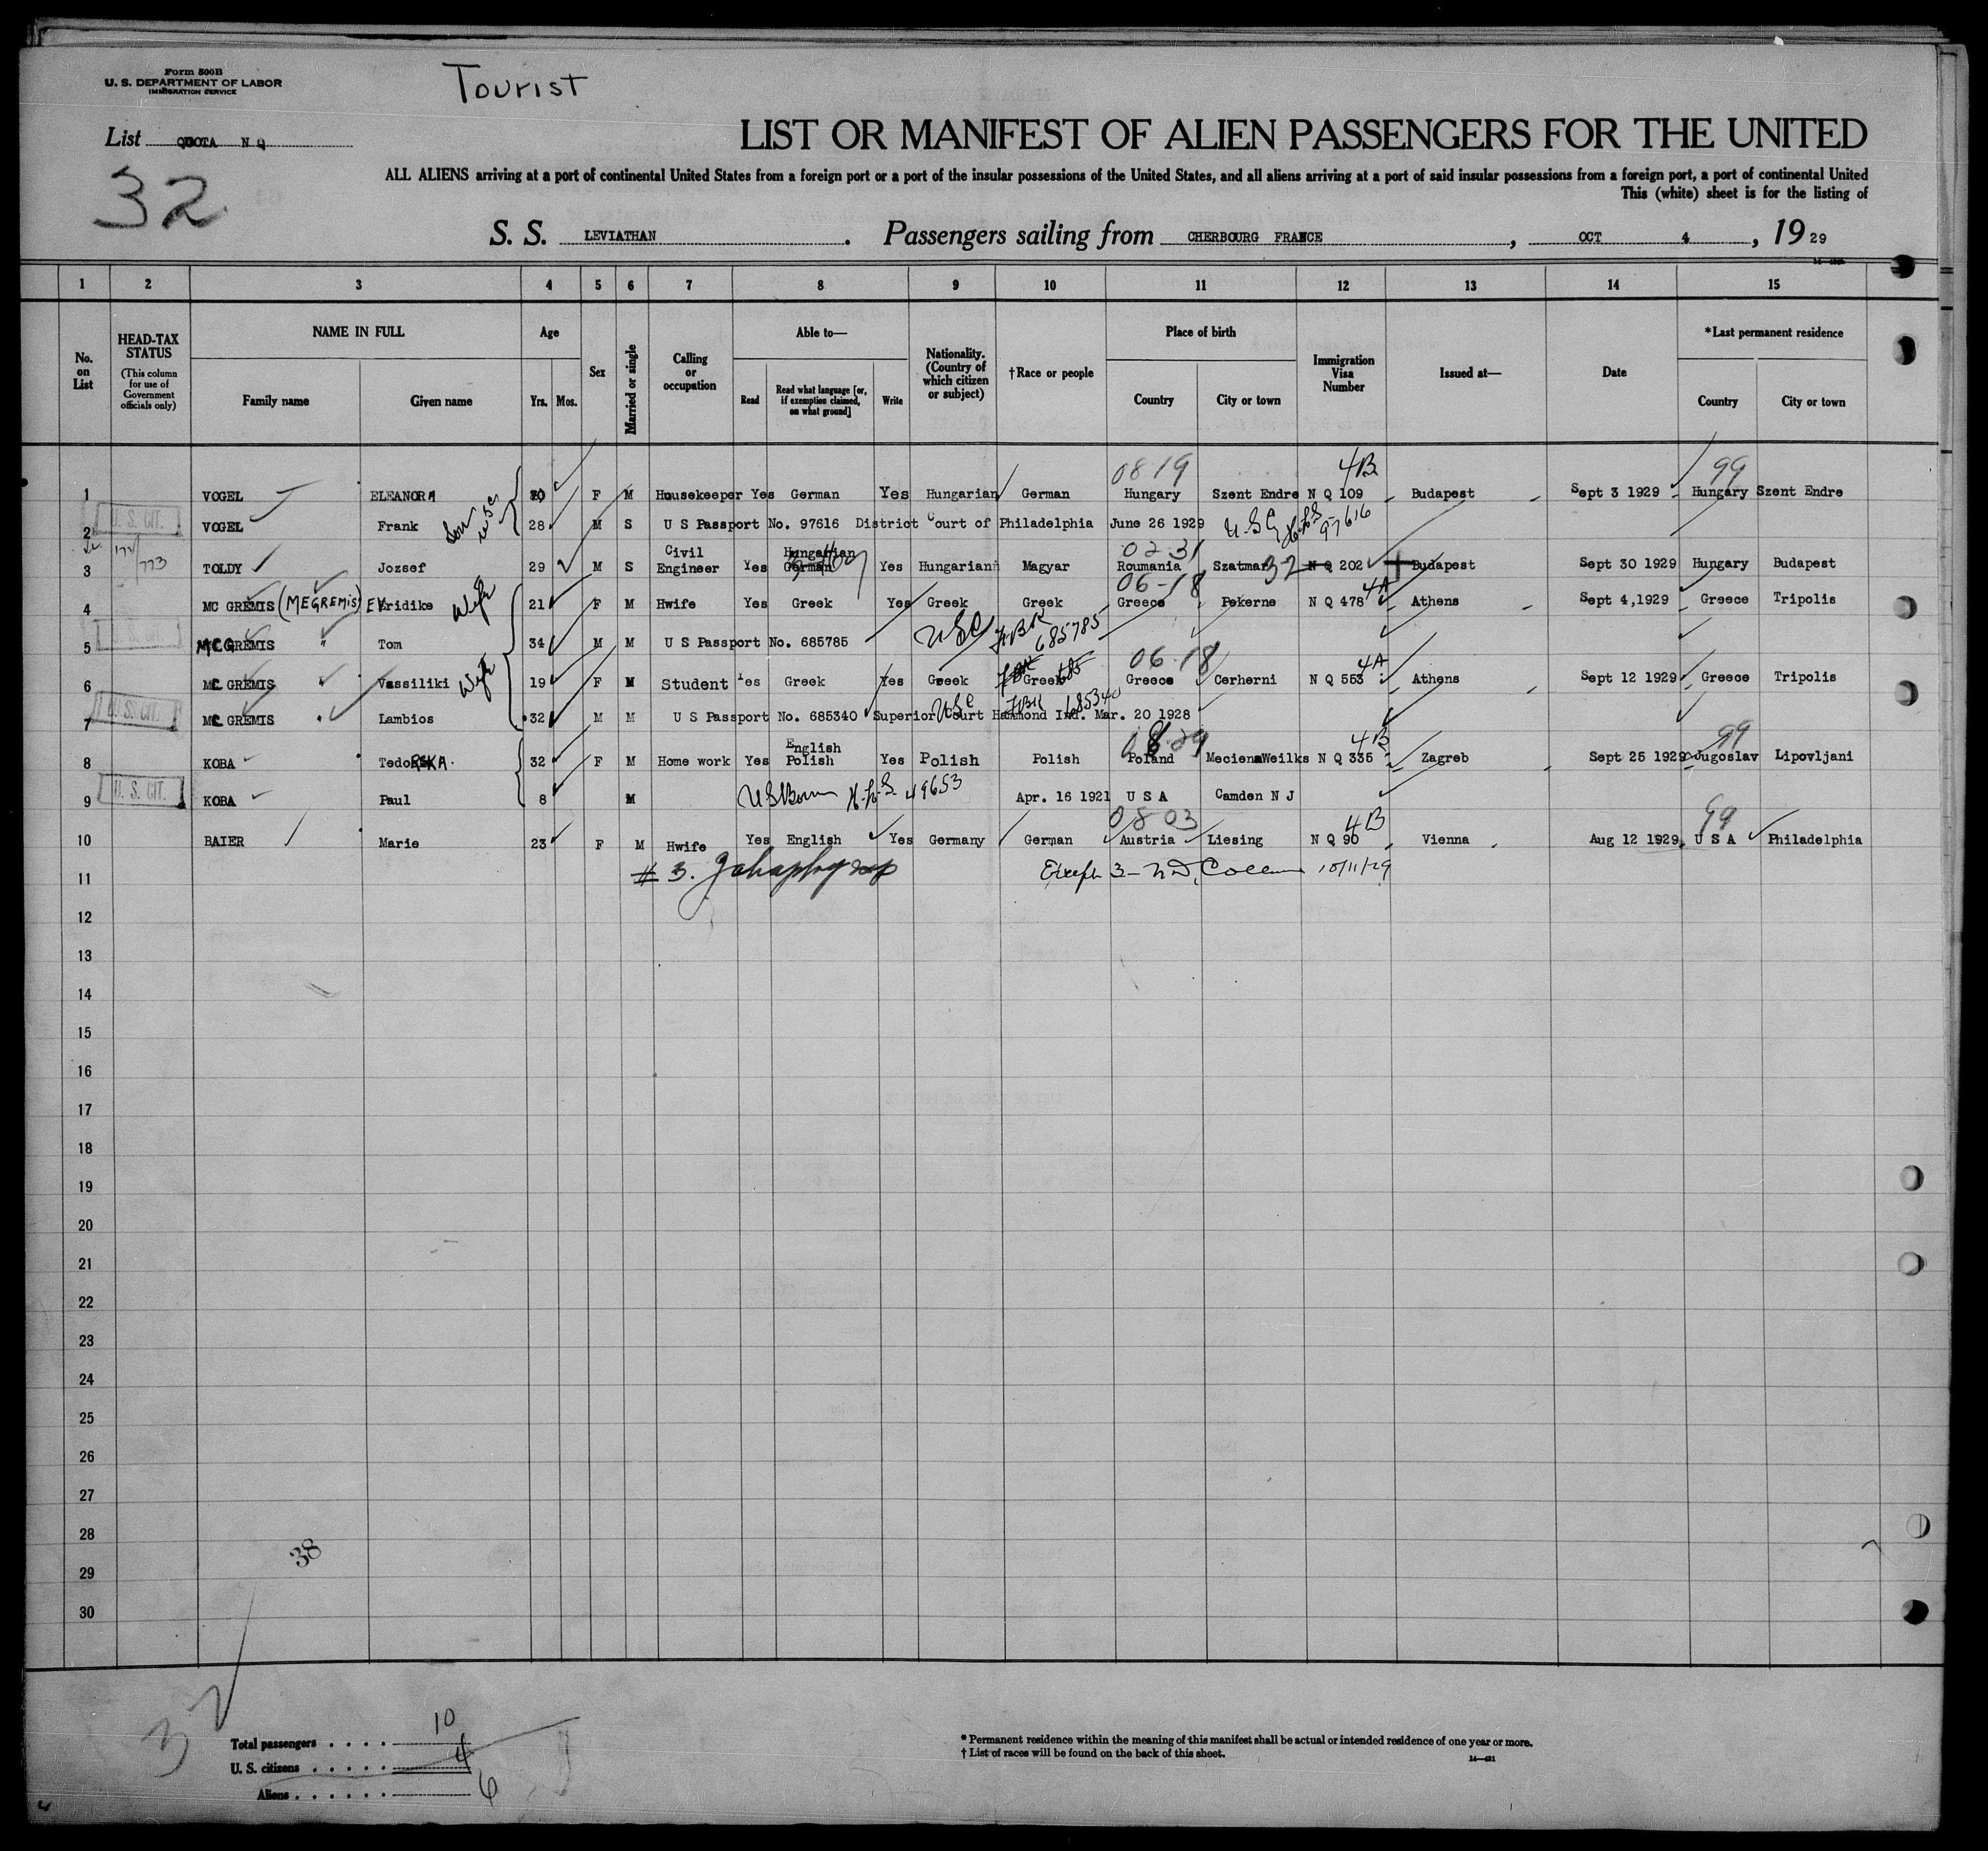 Form 500B
U. S. DEPARTMENT OF LABOR
IMMIGRATION SERVICE
Tourist
List QUOTA N Q
32
LIST OR MANIFEST OF ALIEN PASSENGERS FOR THE UNITED
ALL ALIENS arriving at a port of continental United States from a foreign port or a port of the insular possessions of the United States, and all aliens arriving at a port of said insular possessions from a foreign port, a port of continental United
This (white) sheet is for the listing of
S. S. LEVIATHAN . Passengers sailing from CHERBOURG FRANCE , OCT 4 , 19 29
1 2 3 4 5 6 7 8 9 10 11 12 13 14 15
No. on List
HEAD-TAX STATUS
(This column for use of Government officials only)
NAME IN FULL
Family name Given name
Age
Yrs. Mos.
Sex
Married or single
Calling or occupation
Able to—
Read
Read what language [or, if exemption claimed, on what ground]
Write
Nationality. (Country of which citizen or subject)
†Race or people
Place of birth
Country City or town
Immigration Visa Number
Issued at—
Date
*Last permanent residence
Country City or town
0819 4B 99
1 VOGEL ELEANORA F M Housekeeper Yes German Yes Hungarian German Hungary Szent Endre N Q 109 Budapest Sept 3 1929 Hungary Szent Endre
2 U. S. CIT. VOGEL Frank Son USC 28 M S U S Passport No. 97616 District Court of Philadelphia June 26 1929 USC 97616
3 TOLDY Jozsef 29 M S Civil Engineer Yes Hungarian German Yes Hungarian Magyar 02 31 Roumania Szatmar 32 N Q 202 Budapest Sept 30 1929 Hungary Budapest
4 MC GREMIS (MEGREMIS) Evridike Wife 21 F M Hwife Yes Greek Yes Greek Greek 06-18 Greece Pekerne N Q 478 4A Athens Sept 4,1929 Greece Tripolis
5 MC GREMIS " Tom 34 M M U S Passport No. 685785 USC 685785
6 MC GREMIS " Vassiliki Wife 19 F M Student Yes Greek Yes Greek Greek 06-18 Greece Cerherni N Q 553 4A Athens Sept 12 1929 Greece Tripolis
7 U. S. CIT. MC GREMIS " Lambios 32 M M U S Passport No. 685340 Superior Court Hammond Ind. Mar. 20 1928 USC 685340
8 KOBA TedoRSKA. 32 F M Home work Yes English Polish Yes Polish Polish Poland MecienaWeilks N Q 335 4B Zagreb Sept 25 1929 99 Jugoslav Lipovljani
9 U. S. CIT. KOBA Paul 8 M US Born 49653 Apr. 16 1921 U S A Camden N J
10 BAIER Marie 23 F M Hwife Yes English Yes Germany German 0803 Austria Liesing N Q 90 4B Vienna Aug 12 1929 99 U S A Philadelphia
11 # 3. Except 3- 10/11/29
12
13
14
15
16
17
18
19
20
21
22
23
24
25
26
27
28
29
30
38
Total passengers 10
U. S. citizens 4
Aliens 6
*Permanent residence within the meaning of this manifest shall be actual or intended residence of one year or more.
†List of races will be found on the back of this sheet.